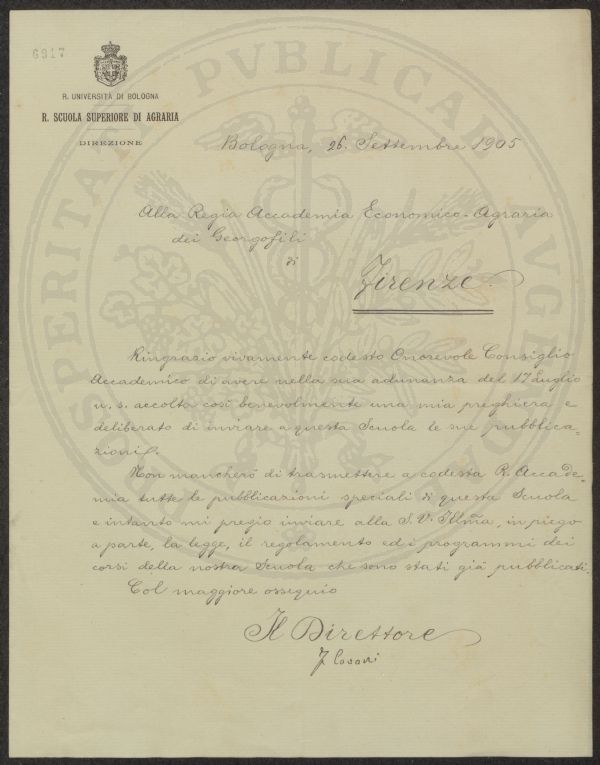 6917
R. UNIVERSITÀ DI BOLOGNA
R. SCUOLA SUPERIORE DI AGRARIA
DIREZIONE
Bologna, 26. Settembre 1905
Alla Regia Accademia Economico-Agraria
dei Georgofili
di
Firenze
Ringrazio vivamente codesto Onorevole Consiglio
Accademico di avere nella sua adunanza del 17 Luglio
u. s. accolta così benevolmente una mia preghiera e
deliberato di inviare a questa Scuola le sue pubblica-
zioni.
Non mancherò di trasmettere a codesta R. Accade-
mia tutte le pubblicazioni speciali di questa Scuola
e intanto mi pregio inviare alla S. V. Illma, in piego
a parte, la legge, il regolamento ed i programmi dei
corsi della nostra Scuola che sono stati già pubblicati.
Col maggiore ossequio
Il Direttore
F. Cavani
PROSPERITATI PVBLICAE AVGENDAE